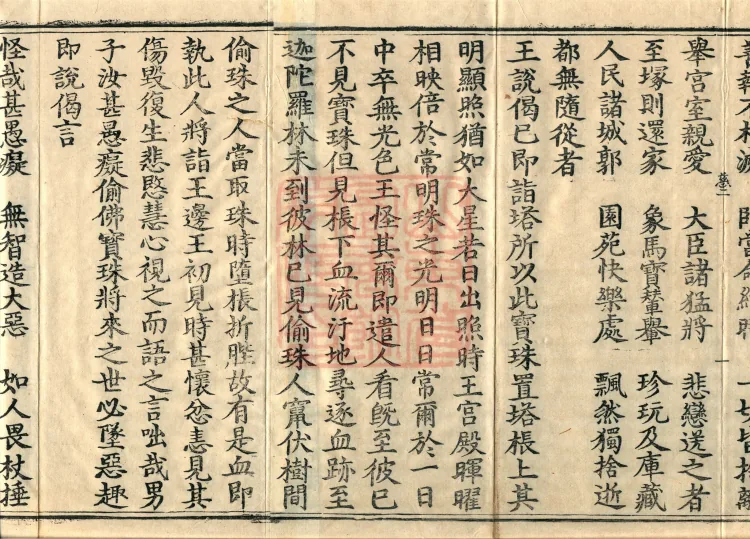 當命終時　一切皆捨離
舉宮室親愛　大臣諸猛將　悲戀送之者
至塚則還家　象馬寶輦轝　珍玩及庫藏
人民諸城郭　園苑快樂處　飄然獨捨逝
都無隨從者
王說偈已即詣塔所以此寶珠置塔棖上其
明顯照猶如大星若日出照時王宮殿暉曜
相映倍於常明珠之光明日日常爾於一日
中卒無光色王怪其爾即遣人看既至彼已
不見寶珠但見棖下血流汙地尋逐血跡至
迦陀羅林未到彼林已見偷珠人竄伏樹間
偷珠之人當取珠時墮棖折䏶故有是血即
執此人將詣王邊王初見時甚懷忿恚見其
傷毀復生悲愍慧心視之而語之言咄哉男
子汝甚愚癡偷佛寶珠將來之世必墜惡趣
即說偈言
怪哉甚愚癡　無智造大惡　如人畏杖捶